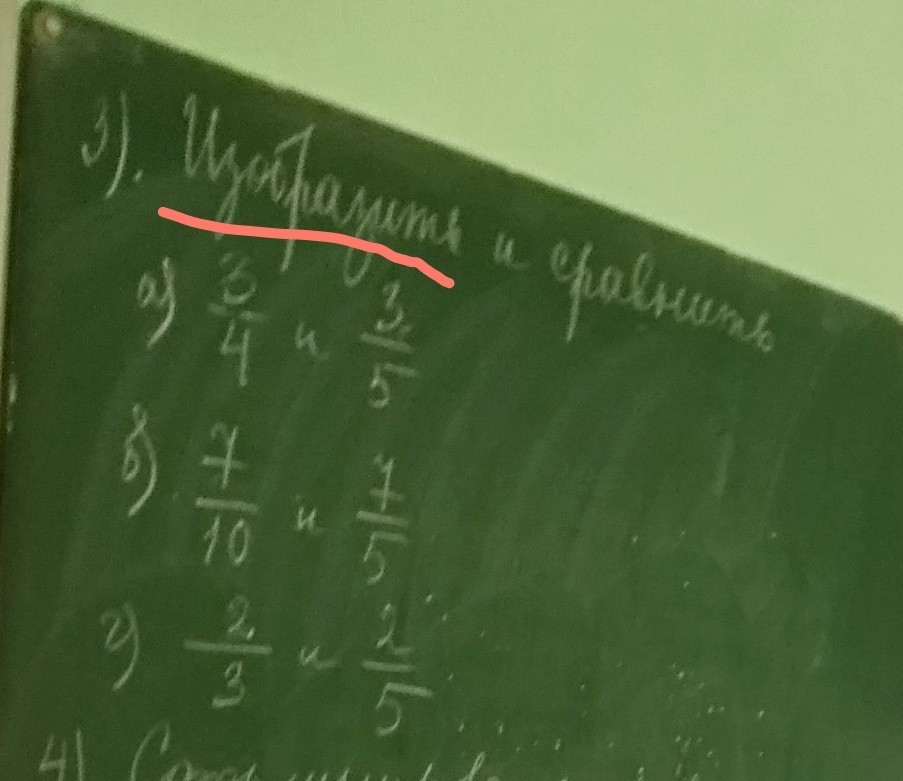 3). Изобразить и сравнить
а) 3/4 и 3/5
б) 7/10 и 7/5
г) 2/3 и 2/5
4)